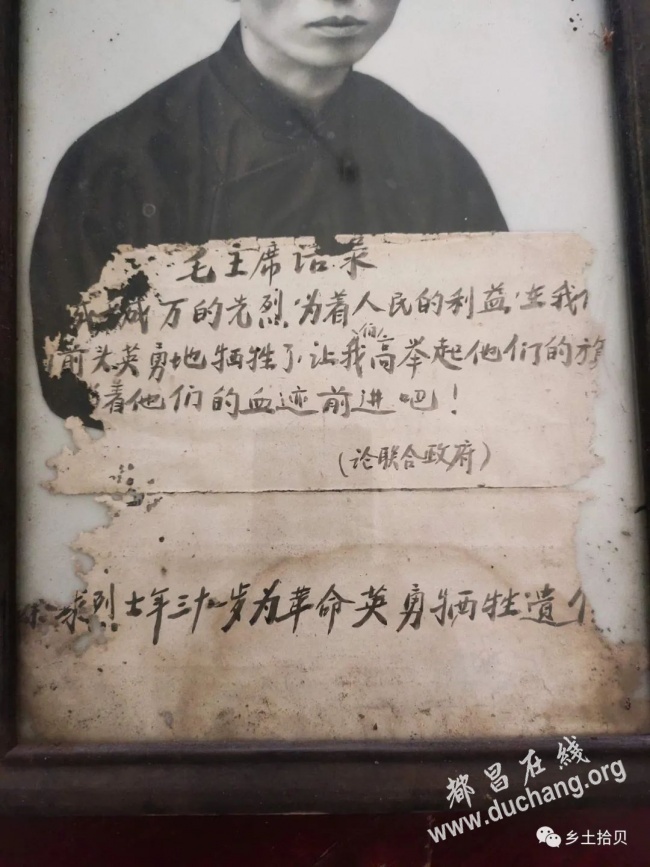 毛主席语录
成万的先烈,为着人民的利益,在我
前头英勇地牺牲了,让我们高举起他们的
着他们的血迹前进吧!
(论联合政府)
烈士年三十一岁为革命英勇牺牲遗
都昌在线
www.duchang.org
乡土拾贝